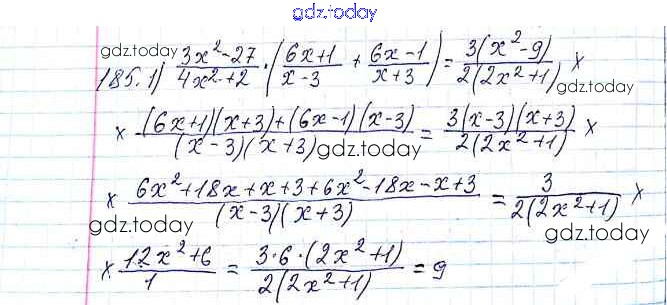 gdz.today
gdz.today
185.1) (3x²-27)/(4x²+2) · ((6x+1)/(x-3) + (6x-1)/(x+3)) = 3(x²-9)/(2(2x²+1)) ×
gdz.today
× ((6x+1)(x+3)+(6x-1)(x-3))/((x-3)(x+3)) = 3(x-3)(x+3)/(2(2x²+1)) ×
gdz.today
× (6x²+18x+x+3+6x²-18x-x+3)/((x-3)(x+3)) = 3/(2(2x²+1)) ×
gdz.today
gdz.today
× (12x²+6)/1 = 3·6·(2x²+1)/(2(2x²+1)) = 9